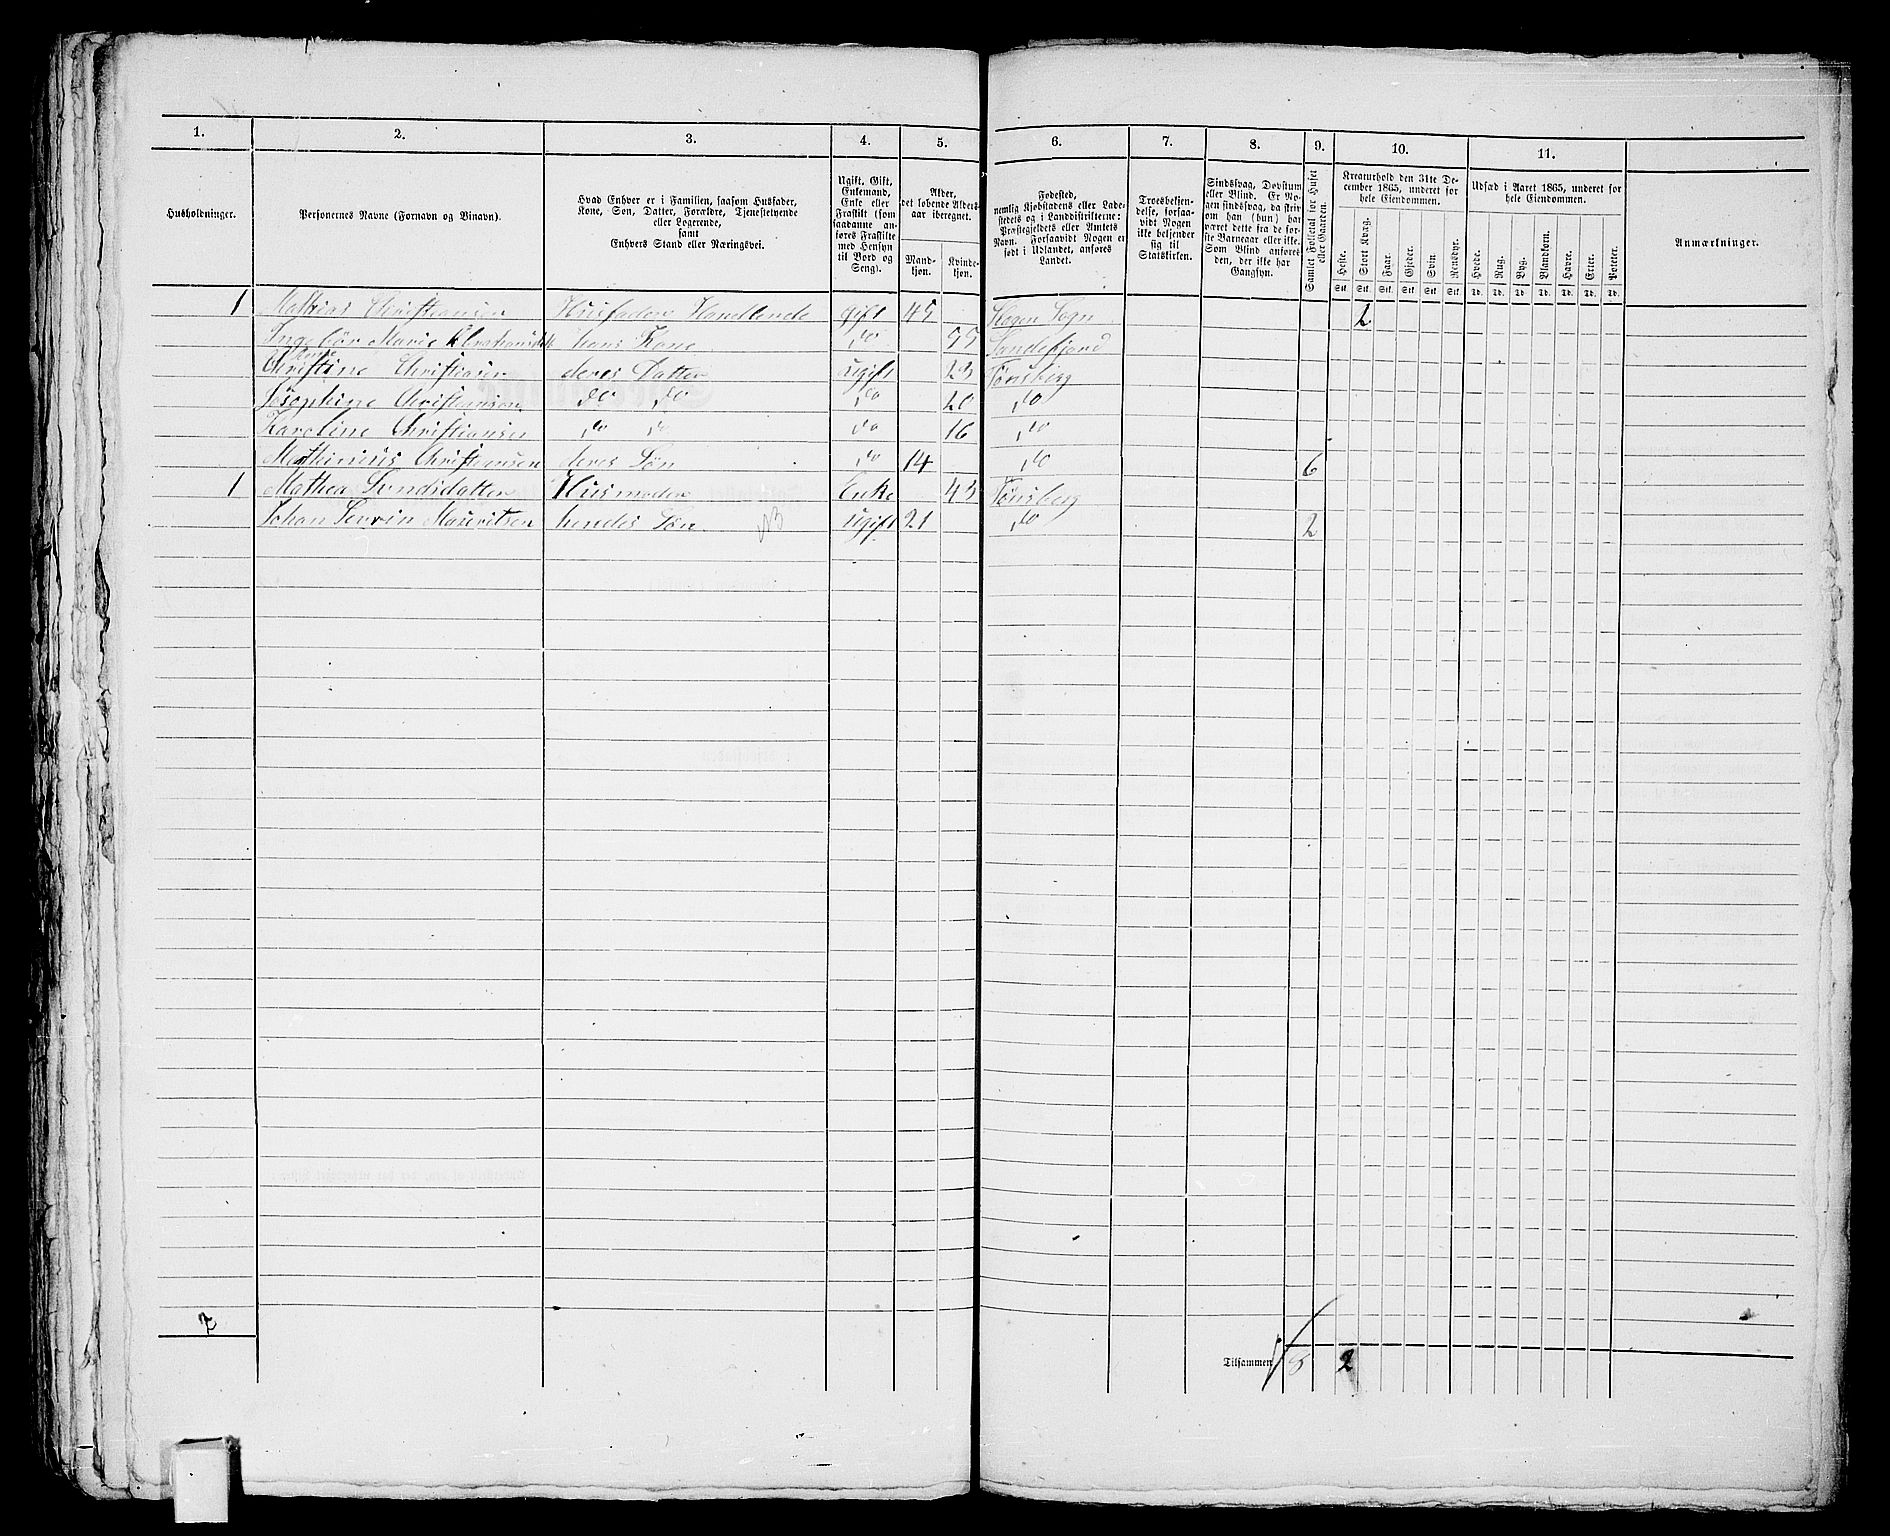 1. 2. 3. 4. 5. 6. 7. 8. 9. 10. 11.
Husholdninger.
Personernes Navne (Fornavn og Binavn).
Hvad Enhver er i Familien, saasom Husfader,
Kone, Søn, Datter, Forældre, Tjenestetyende
eller Logerende,
samt
Enhvers Stand eller Næringsvei.
Ugift, Gift,
Enkemand,
Enke eller
Fraskilt (som
saadanne an-
føres Fraskilte
med Hensyn
til Bord og
Seng).
Alder,
det løbende Alders-
aar iberegnet.
Mand-
kjøn.
Kvinde-
kjøn.
Fødested,
nemlig Kjøbstadens eller Lade-
stedets og i Landdistrikterne:
Præstegjeldets eller Amtets
Navn. Forsaavidt Nogen er
født i Udlandet, anføres
Landet.
Troesbekjen-
delse, forsaa-
vidt Nogen
ikke bekjender
sig til
Statskirken.
Sindssvag, Døvstum
eller Blind. Er No-
gen sindssvag, da skriv
om han (hun) har
været dette fra de før-
ste Barneaar eller ikke.
Som Blind anføres
den, der ikke har
Gangsyn.
Samlet Folketal for Huset
eller Gaarden.
Kreaturhold den 31te De-
cember 1865, underet for
hele Eiendommen.
Heste. Stort Kvæg. Faar. Gjeder. Svin. Rensdyr.
Stk. Stk. Stk. Stk. Stk. Stk.
Udsæd i Aaret 1865, underet for
hele Eiendommen.
Hvede. Rug. Byg. Blandkorn. Havre. Erter. Poteter.
Td. Td. Td. Td. Td. Td. Td.
Anmærkninger.
1 Mathias Christiansen Husfader Handlende gift 45 Slagen Sogn 2
Ingebör Marie hans Kone do 55 Sandefjord
Christine Christiansen deres Datter ugift 23 Tönsberg
Josephine Christiansen do do do 20 do
Karoline Christiansen do do do 16 do
Mathinius Christiansen deres Søn do 14 do 6
1 Mathea Svendsdatter Husmoder Enke 43 Tönsberg
Johan Sevrin Mauritsen hendes Søn ugift 21 do 2
2
Tilsammen 8 2